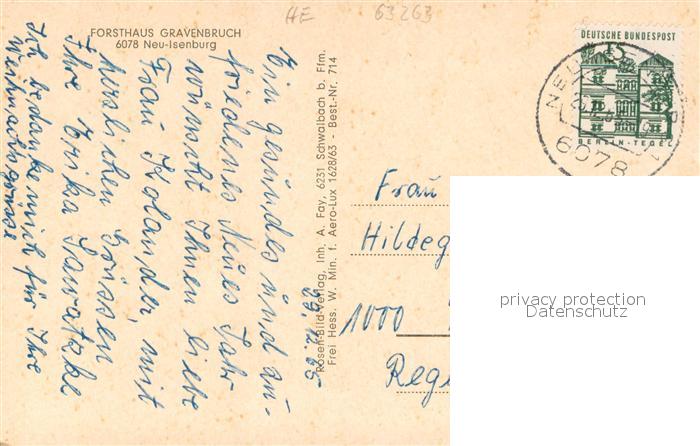 HE 63263
FORSTHAUS GRAVENBRUCH
6078 Neu-Isenburg
29.12.65
Ein gesundes und zu-
friedenes Neues Jahr
wünscht Ihnen liebe
Frau Kolander, mit
herzlichen Grüssen
Ihre Erika Sawatzke
Ich bedanke mich für Ihre
Weihnachtsgrüsse
Rosen-Bild-Verlag, Inh. A. Fay, 6231 Schwalbach b. Ffm.
Frei Hess. W. Min. f. Aero-Lux 1628/63 - Best.-Nr. 714
DEUTSCHE BUNDESPOST
15
BERLIN-TEGEL
6078
Frau
Hildeg
1000
Reg
privacy protection
Datenschutz